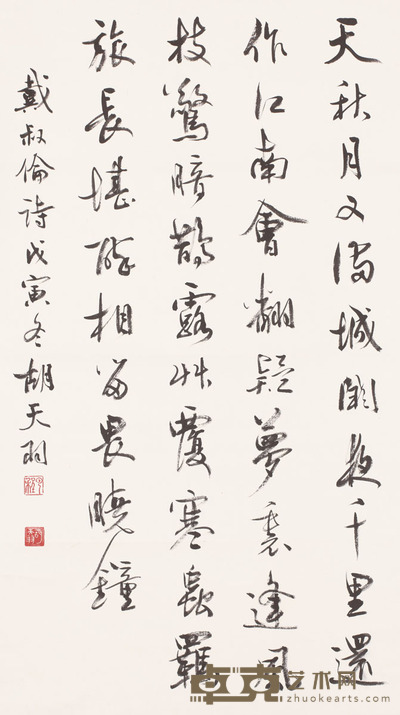 天秋月又满城阙夜千里還
作江南會翻疑夢裏逢風
枝驚暗鹊露艸覆寒蟲羈
旅長堪醉相留畏曉鐘
戴叔倫詩戊寅冬胡天羽
艺术网
zhuokearts.com